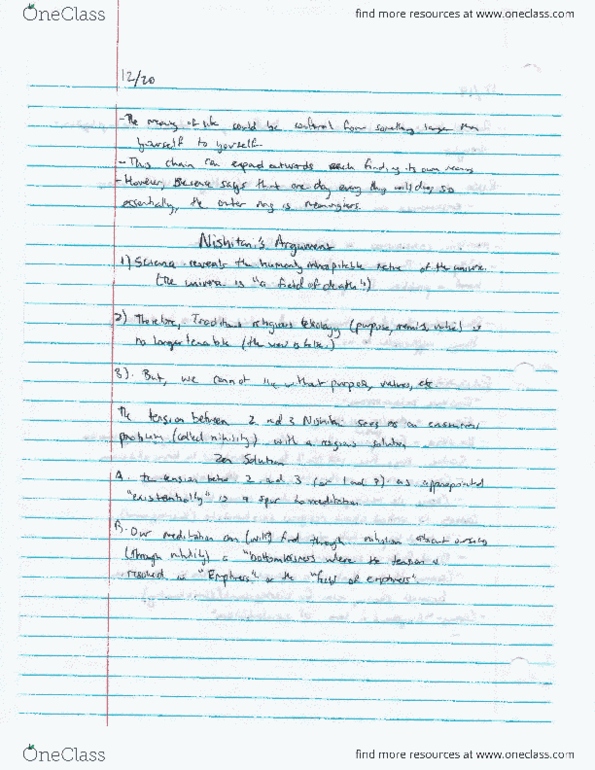 OneClass
find more resources at www.oneclass.com
12/20
- The meaning of life could be conferred from something larger than
yourself to yourself.
- This chain can expand outwards each finding its own meaning
- However, says that one day every thing will die, so
essentially, the outer ring is meaningless.
Nishitani's Argument
1) Science reveals the humanly inhospitable nature of the universe.
(the universe is "a field of death")
2) Therefore, Traditional religious teleology (purpose, values) is
no longer tenable (the view is false.)
3). But, we cannot live without purpose, values, etc
The tension between 2 and 3 Nishitani sees as an existential
problem (called nihility) with a religious solution
Zen Solution
A. the tension between 2 and 3 (or 1 and 3) as appropriated
"existentially" is a spur to meditation.
B. Our meditation can (will) find through nihilism about ourselves
(through nihility) a "bottomlessness where the tension is
resolved in "Emptiness" or the "field of emptiness"
OneClass
find more resources at www.oneclass.com